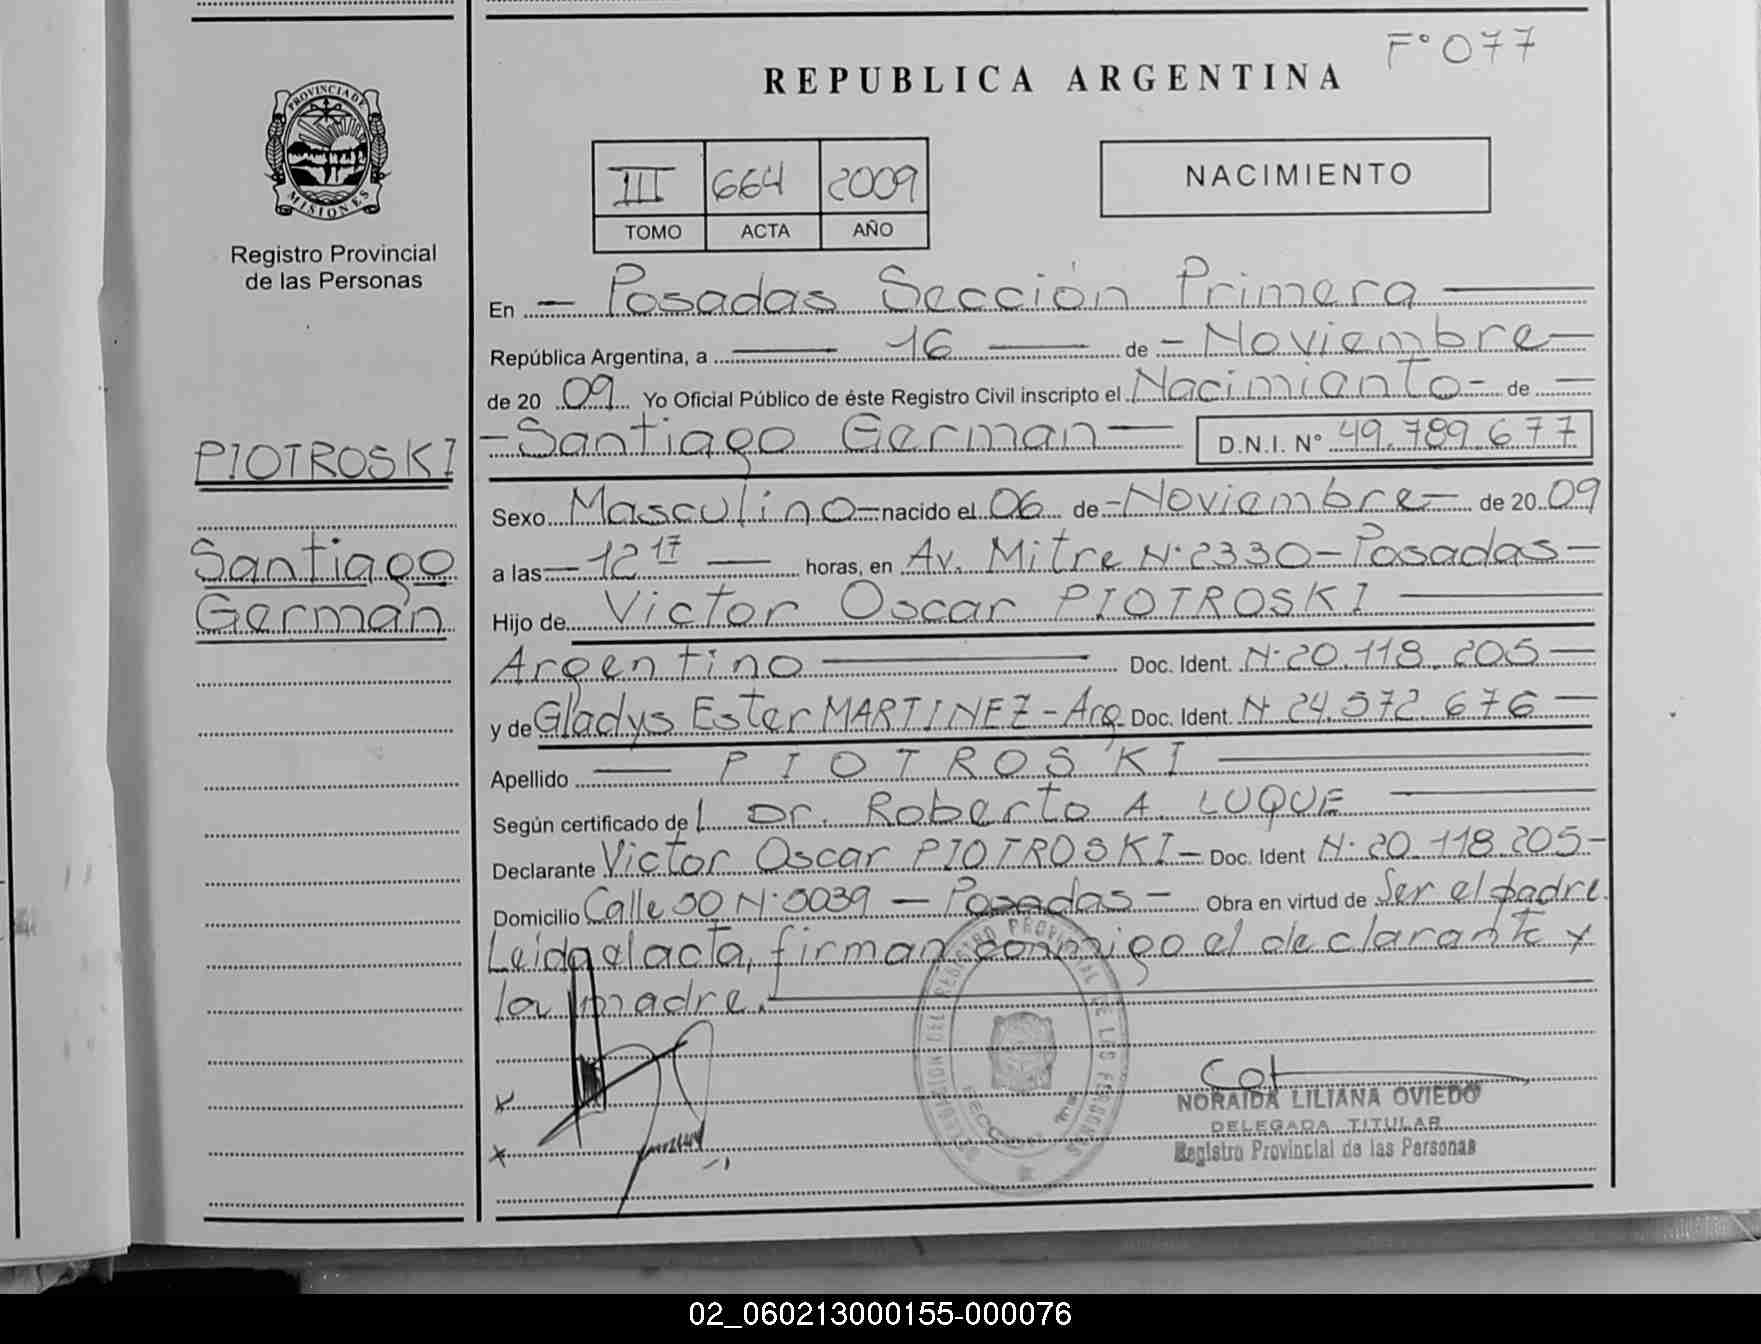 F° 077
REPUBLICA ARGENTINA
PROVINCIA DE MISIONES
Registro Provincial
de las Personas
III 664 2009
TOMO ACTA AÑO
NACIMIENTO
En - Posadas Sección Primera
República Argentina, a 16 de - Noviembre -
de 20 09 Yo Oficial Público de éste Registro Civil inscripto el Nacimiento - de
PIOTROSKI
- Santiago German - D.N.I. N° 49.789.677
Sexo Masculino - nacido el 06 de - Noviembre - de 20 09
Santiago
German
a las - 12 17 - horas, en Av. Mitre N° 2330 - Posadas -
Hijo de Victor Oscar PIOTROSKI
Argentino Doc. Ident. N° 20.118.205 -
y de Gladys Ester MARTINEZ - Arg Doc. Ident. N° 24.572.676 -
Apellido PIOTROSKI
Según certificado de l Dr. Roberto A. LUQUE
Declarante Victor Oscar PIOTROSKI - Doc. Ident N° 20.118.205 -
Domicilio Calle 50 N° 5039 - Posadas - Obra en virtud de Ser el padre.
Leida el acta, firman conmigo el declarante y
la madre.
REGISTRO PROVINCIAL DE LAS PERSONAS
NORAIDA LILIANA OVIEDO
DELEGADA TITULAR
Registro Provincial de las Personas
02_060213000155-000076